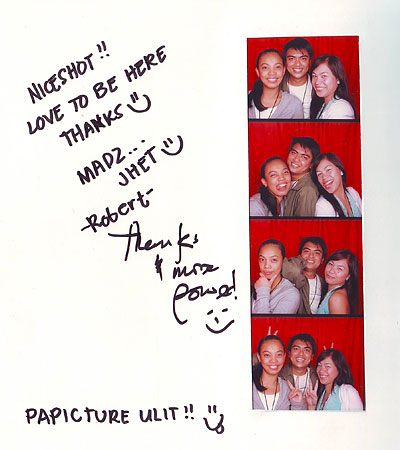 NICESHOT!!
LOVE TO BE HERE
THANKS
MADZ...
JHET
-Robert-
Thanks
& more
power!
PAPICTURE ULIT!!